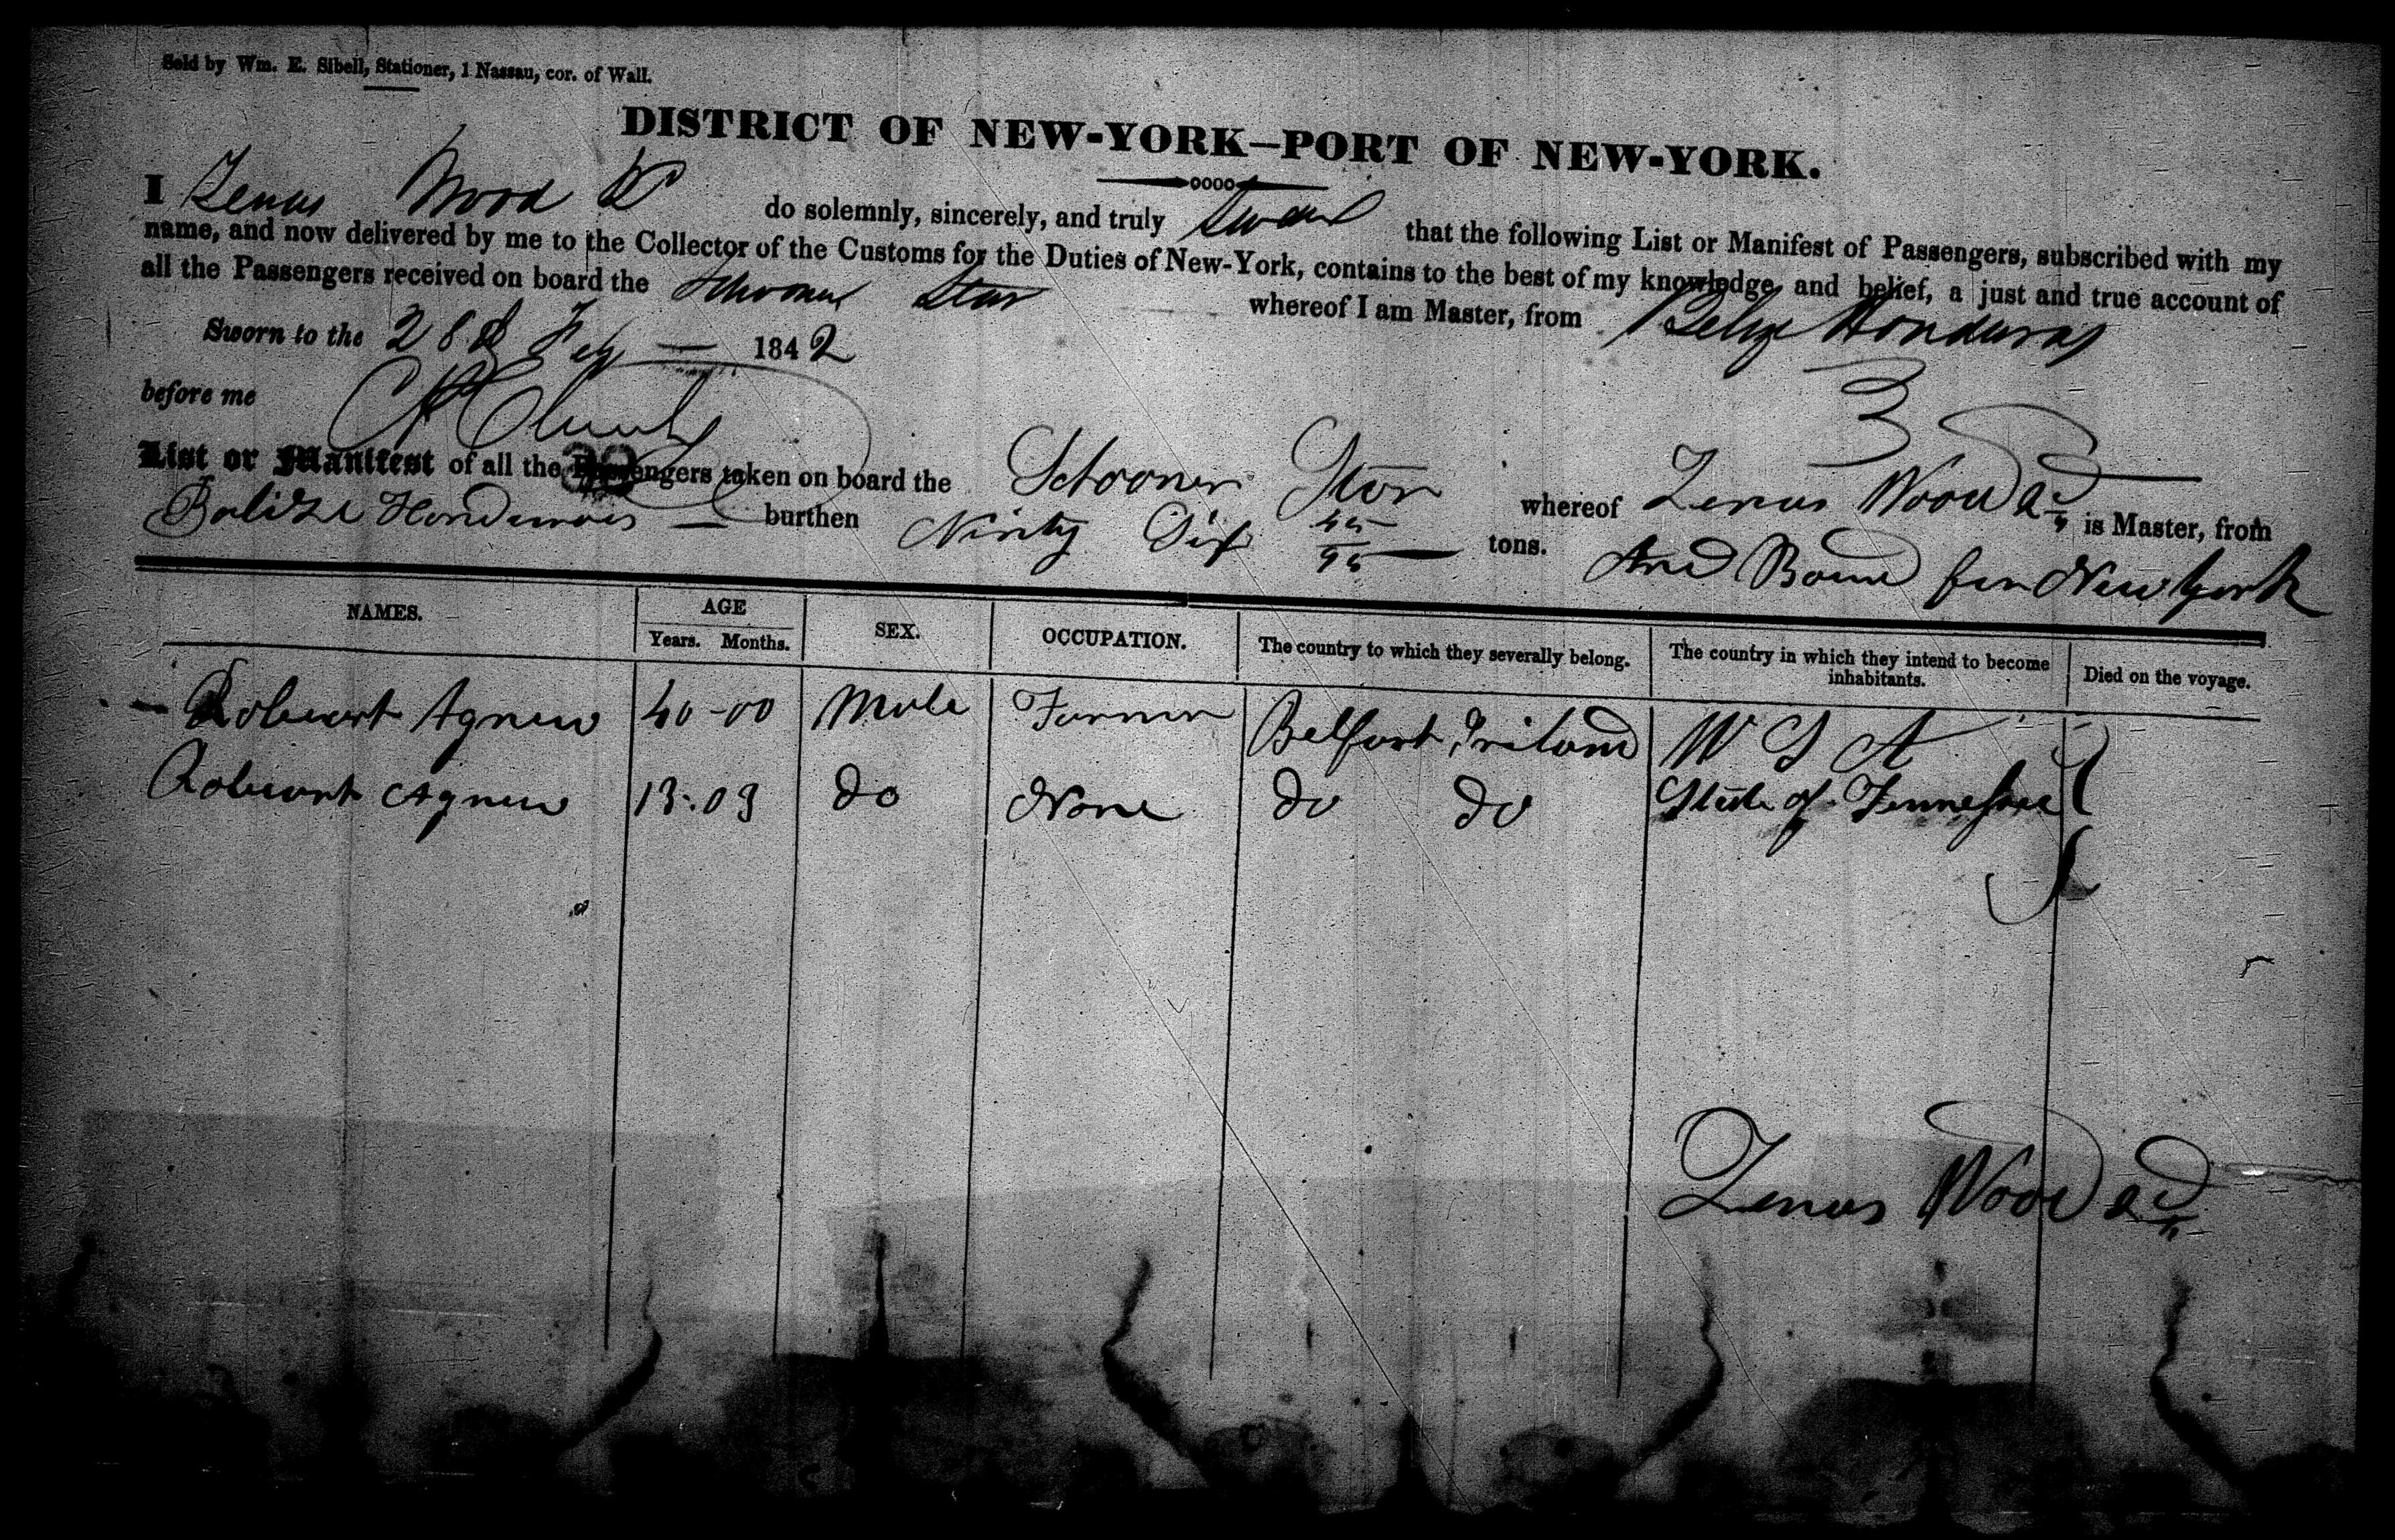 Sold by Wm. E. Sibell, Stationer, 1 Nassau, cor. of Wall.
DISTRICT OF NEW-YORK—PORT OF NEW-YORK.
I Zenas Wood do solemnly, sincerely, and truly swear that the following List or Manifest of Passengers, subscribed with my
name, and now delivered by me to the Collector of the Customs for the Duties of New-York, contains to the best of my knowledge and belief, a just and true account of
all the Passengers received on board the Schooner Star whereof I am Master, from Belize Honduras
Sworn to the 28 Feby — 1842
3
before me
List or Manifest of all the Passengers taken on board the Schooner Star whereof Zenas Wood 2d is Master, from
Balize Honduras — burthen Ninty Six tons. And Bound for New York
NAMES. AGE SEX. OCCUPATION. The country to which they severally belong. The country in which they intend to become inhabitants. Died on the voyage.
Years. Months.
Robuart Agnew 40-00 Male Farmer Belfast Iriland U S A
Robuart Agnew 13.03 do None do do State of Tennessee
Zenas Wood 2d